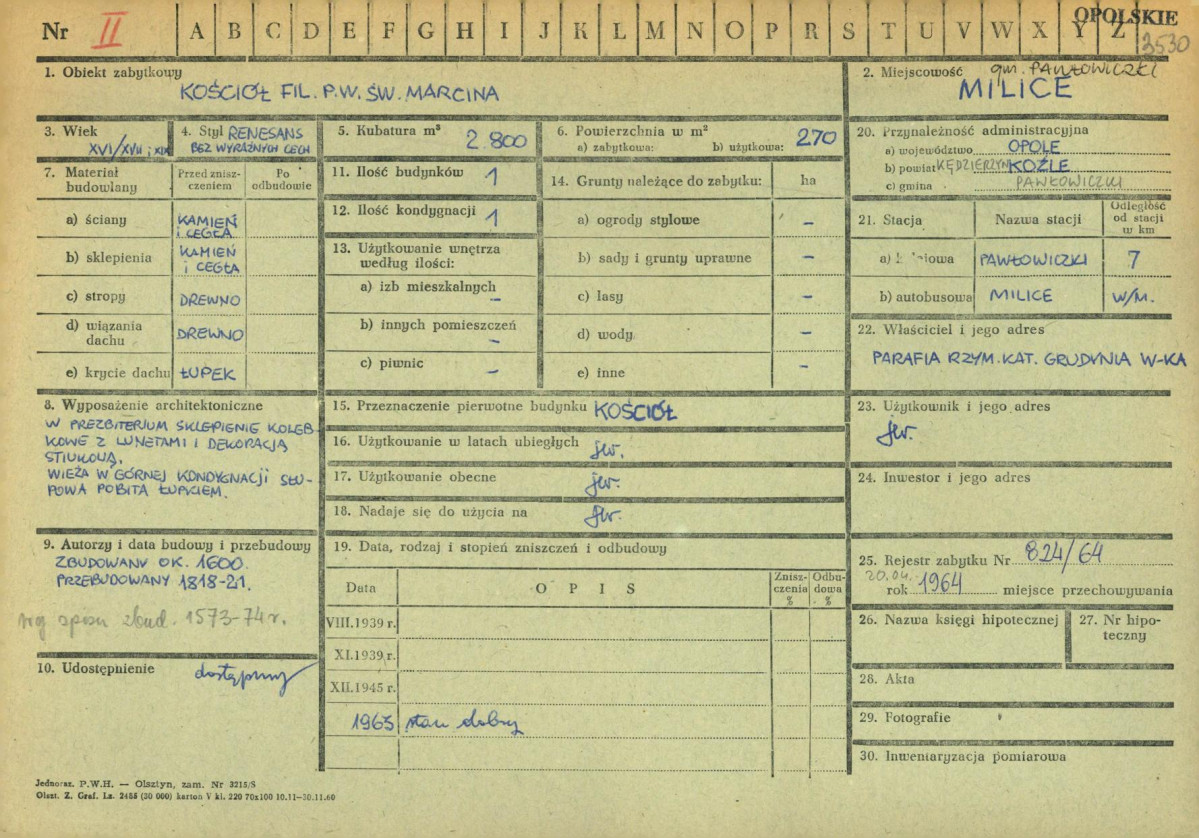 Nr II A B C D E F G H I J K L M N O P R S T U V W X Y Z
OPOLSKIE
3530
1. Obiekt zabytkowy
KOŚCIÓŁ FIL. P.W. ŚW. MARCINA
2. Miejscowość gm. PAWŁOWICZKI
MILICE
3. Wiek
XVI/XVII i XIX
4. Styl RENESANS
BEZ WYRAŹNYCH CECH
5. Kubatura m³ 2.800
6. Powierzchnia w m²
a) zabytkowa: b) użytkowa: 270
7. Materiał budowlany
Przed znisz-
czeniem
Po
odbudowie
a) ściany KAMIEŃ
I CEGŁA
b) sklepienia KAMIEŃ
I CEGŁA
c) stropy DREWNO
d) wiązania
dachu DREWNO
e) krycie dachu ŁUPEK
8. Wyposażenie architektoniczne
W PREZBITERIUM SKLEPIENIE KOLEB
KOWE Z LUNETAMI I DEKORACJĄ
STIUKOWĄ.
WIEŻA W GÓRNEJ KONDYGNACJI SŁU-
POWA POBITA ŁUPKIEM.
9. Autorzy i data budowy i przebudowy
ZBUDOWANY OK. 1600.
PRZEBUDOWANY 1818-21.
wg spisu zbud. 1573-74 r.
10. Udostępnienie dostępny
11. Ilość budynków 1
12. Ilość kondygnacji 1
13. Użytkowanie wnętrza
według ilości:
a) izb mieszkalnych –
b) innych pomieszczeń –
c) piwnic –
14. Grunty należące do zabytku: ha
a) ogrody stylowe –
b) sady i grunty uprawne –
c) lasy –
d) wody –
e) inne –
15. Przeznaczenie pierwotne budynku KOŚCIÓŁ
16. Użytkowanie w latach ubiegłych jw.
17. Użytkowanie obecne jw.
18. Nadaje się do użycia na jw.
19. Data, rodzaj i stopień zniszczeń i odbudowy
Data OPIS
Znisz-
czenia
%
Odbu-
dowa
%
VIII.1939 r.
XI.1939 r.
XII.1945 r.
1963 stan dobry
20. Przynależność administracyjna
a) województwo OPOLE
b) powiat KĘDZIERZYN KOŹLE
c) gmina PAWŁOWICZKI
21. Stacja Nazwa stacji
Odległość
od stacji
w km
a) PAWŁOWICZKI 7
b) autobusowa MILICE W/M.
22. Właściciel i jego adres
PARAFIA RZYM. KAT. GRUDYNIA W-KA
23. Użytkownik i jego adres
jw.
24. Inwestor i jego adres
25. Rejestr zabytku Nr 824/64
20.04.
rok 1964 miejsce przechowywania
26. Nazwa księgi hipotecznej
27. Nr hipo-
teczny
28. Akta
29. Fotografie
30. Inwentaryzacja pomiarowa
Jednoraz. P.W.H. — Olsztyn, zam. Nr 3215/S
Olszt. Z. Graf. Lz. 2455 (30 000) karton V kl. 220 70x100 10.11—30.11.60